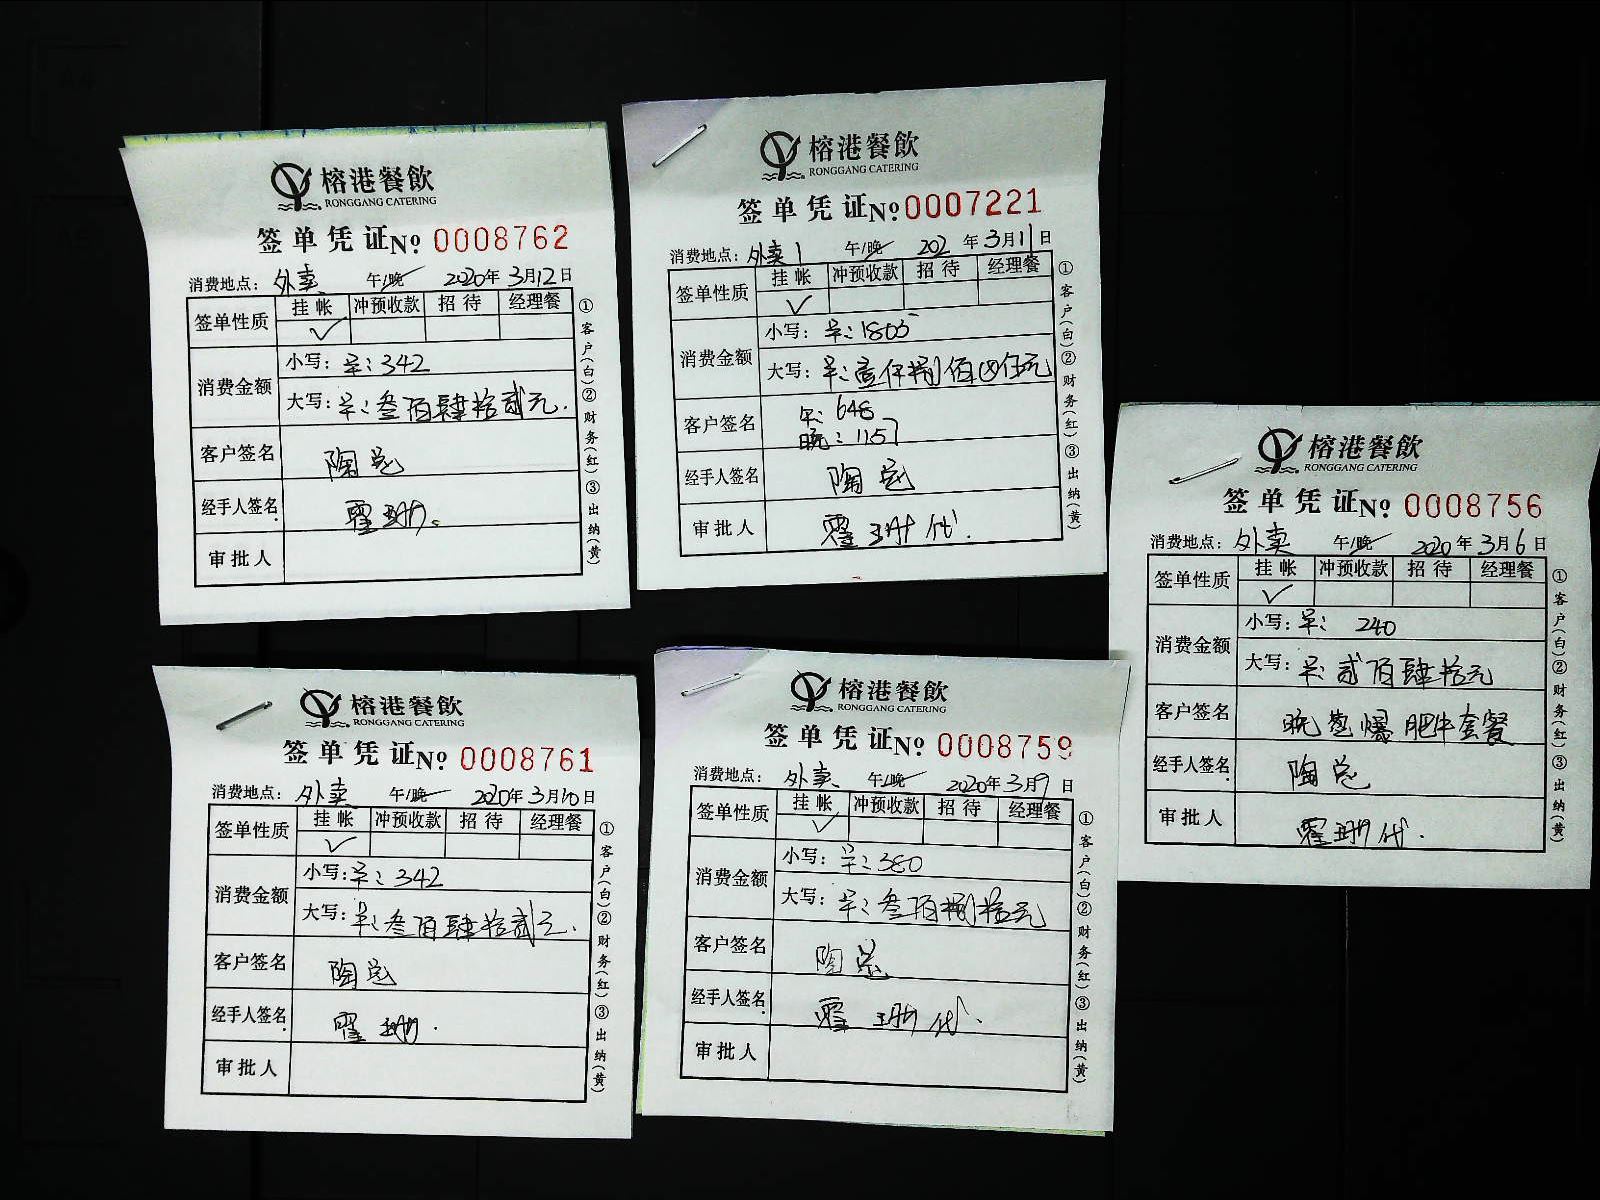 榕港餐飲
RONGGANG CATERING
签单凭证 № 0008762
消费地点：外卖 午/晚 2020年3月12日
签单性质 挂帐 冲预收款 招待 经理餐
✓
消费金额 小写：早：342
大写：早：叁佰肆拾贰元.
客户签名 陶总
经手人签名 霍珊
审批人
①客户(白)②财务(红)③出纳(黄)
榕港餐飲
RONGGANG CATERING
签单凭证 № 0007221
消费地点：外卖1 午/晚 202 年3月11日
签单性质 挂帐 冲预收款 招待 经理餐
✓
消费金额 小写：早：1805
大写：早：壹仟捌佰 元
午：648
客户签名 晚：1157
经手人签名 陶总
审批人 霍珊代.
①客户(白)②财务(红)③出纳(黄)
榕港餐飲
RONGGANG CATERING
签单凭证 № 0008756
消费地点：外卖 午/晚 2020年3月6日
签单性质 挂帐 冲预收款 招待 经理餐
✓
消费金额 小写：早：240
大写：早：贰佰肆拾元
客户签名 晚葱爆肥牛套餐
经手人签名 陶总
审批人 霍珊代.
①客户(白)②财务(红)③出纳(黄)
榕港餐飲
RONGGANG CATERING
签单凭证 № 0008761
消费地点：外卖 午/晚 2020年3月10日
签单性质 挂帐 冲预收款 招待 经理餐
✓
消费金额 小写：早：342
大写：早：叁佰肆拾贰元.
客户签名 陶总
经手人签名 霍珊.
审批人
①客户(白)②财务(红)③出纳(黄)
榕港餐飲
RONGGANG CATERING
签单凭证 № 0008759
消费地点：外卖 午/晚 2020年3月9日
签单性质 挂帐 冲预收款 招待 经理餐
✓
消费金额 小写：早：380
大写：早：叁佰捌拾元
客户签名 陶总
经手人签名 霍珊代.
审批人
①客户(白)②财务(红)③出纳(黄)